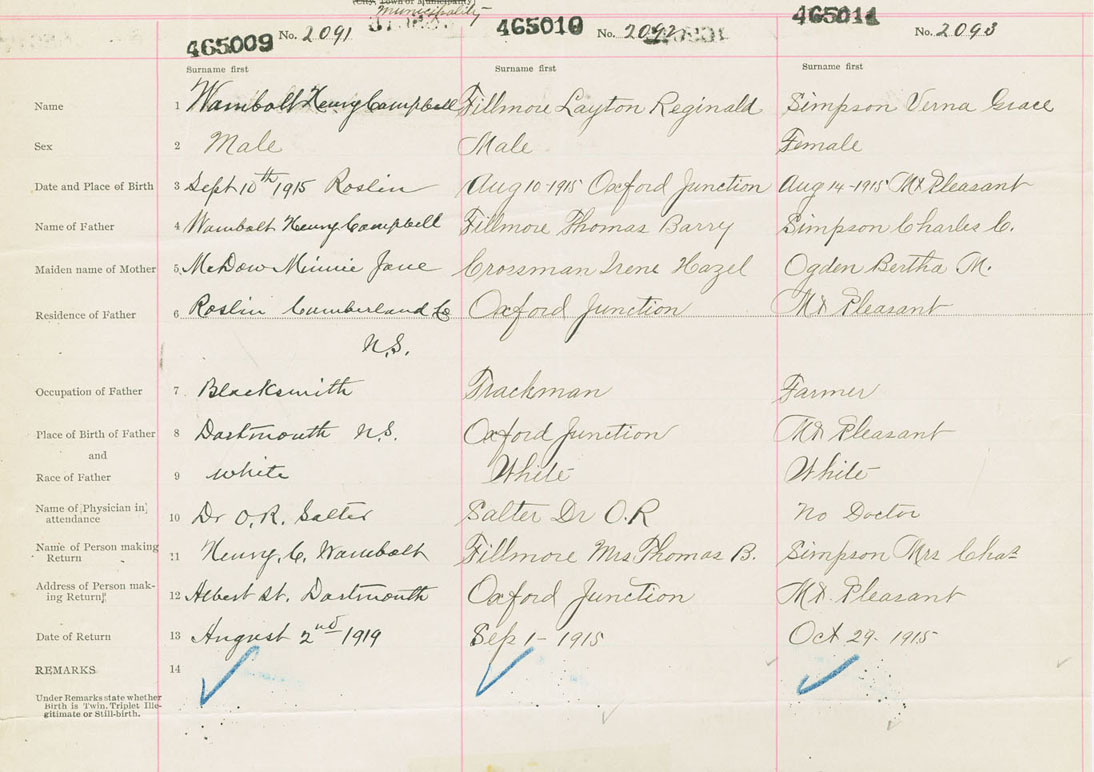 (City, Town or Municipality)
Municipality
465009 No. 2091 465010 No. 2092 465011 No. 2093
Surname first Surname first Surname first
Name 1 Wambolt Henry Campbell Fillmore Layton Reginald Simpson Verna Grace
Sex 2 Male Male Female
Date and Place of Birth 3 Sept 10th 1915 Roslin Aug 10-1915 Oxford Junction Aug 14-1915 Mt Pleasant
Name of Father 4 Wambolt Henry Campbell Fillmore Thomas Barry Simpson Charles C.
Maiden name of Mother 5 McDow Minnie Jane Crossman Irene Hazel Ogden Bertha M.
Residence of Father 6 Roslin Cumberland Co Oxford Junction Mt Pleasant
N.S.
Occupation of Father 7 Blacksmith Trackman Farmer
Place of Birth of Father 8 Dartmouth N.S. Oxford Junction Mt Pleasant
and
Race of Father 9 white White White
Name of Physician in attendance 10 Dr O.R. Salter Salter Dr O.R No Doctor
Name of Person making Return 11 Henry C. Wambolt Fillmore Mrs Thomas B. Simpson Mrs Chas
Address of Person making Return 12 Albert St. Dartmouth Oxford Junction Mt. Pleasant
Date of Return 13 August 2nd 1919 Sep 1- 1915 Oct 29- 1915
REMARKS 14
Under Remarks state whether
Birth is Twin, Triplet Ille-
gitimate or Still-birth.